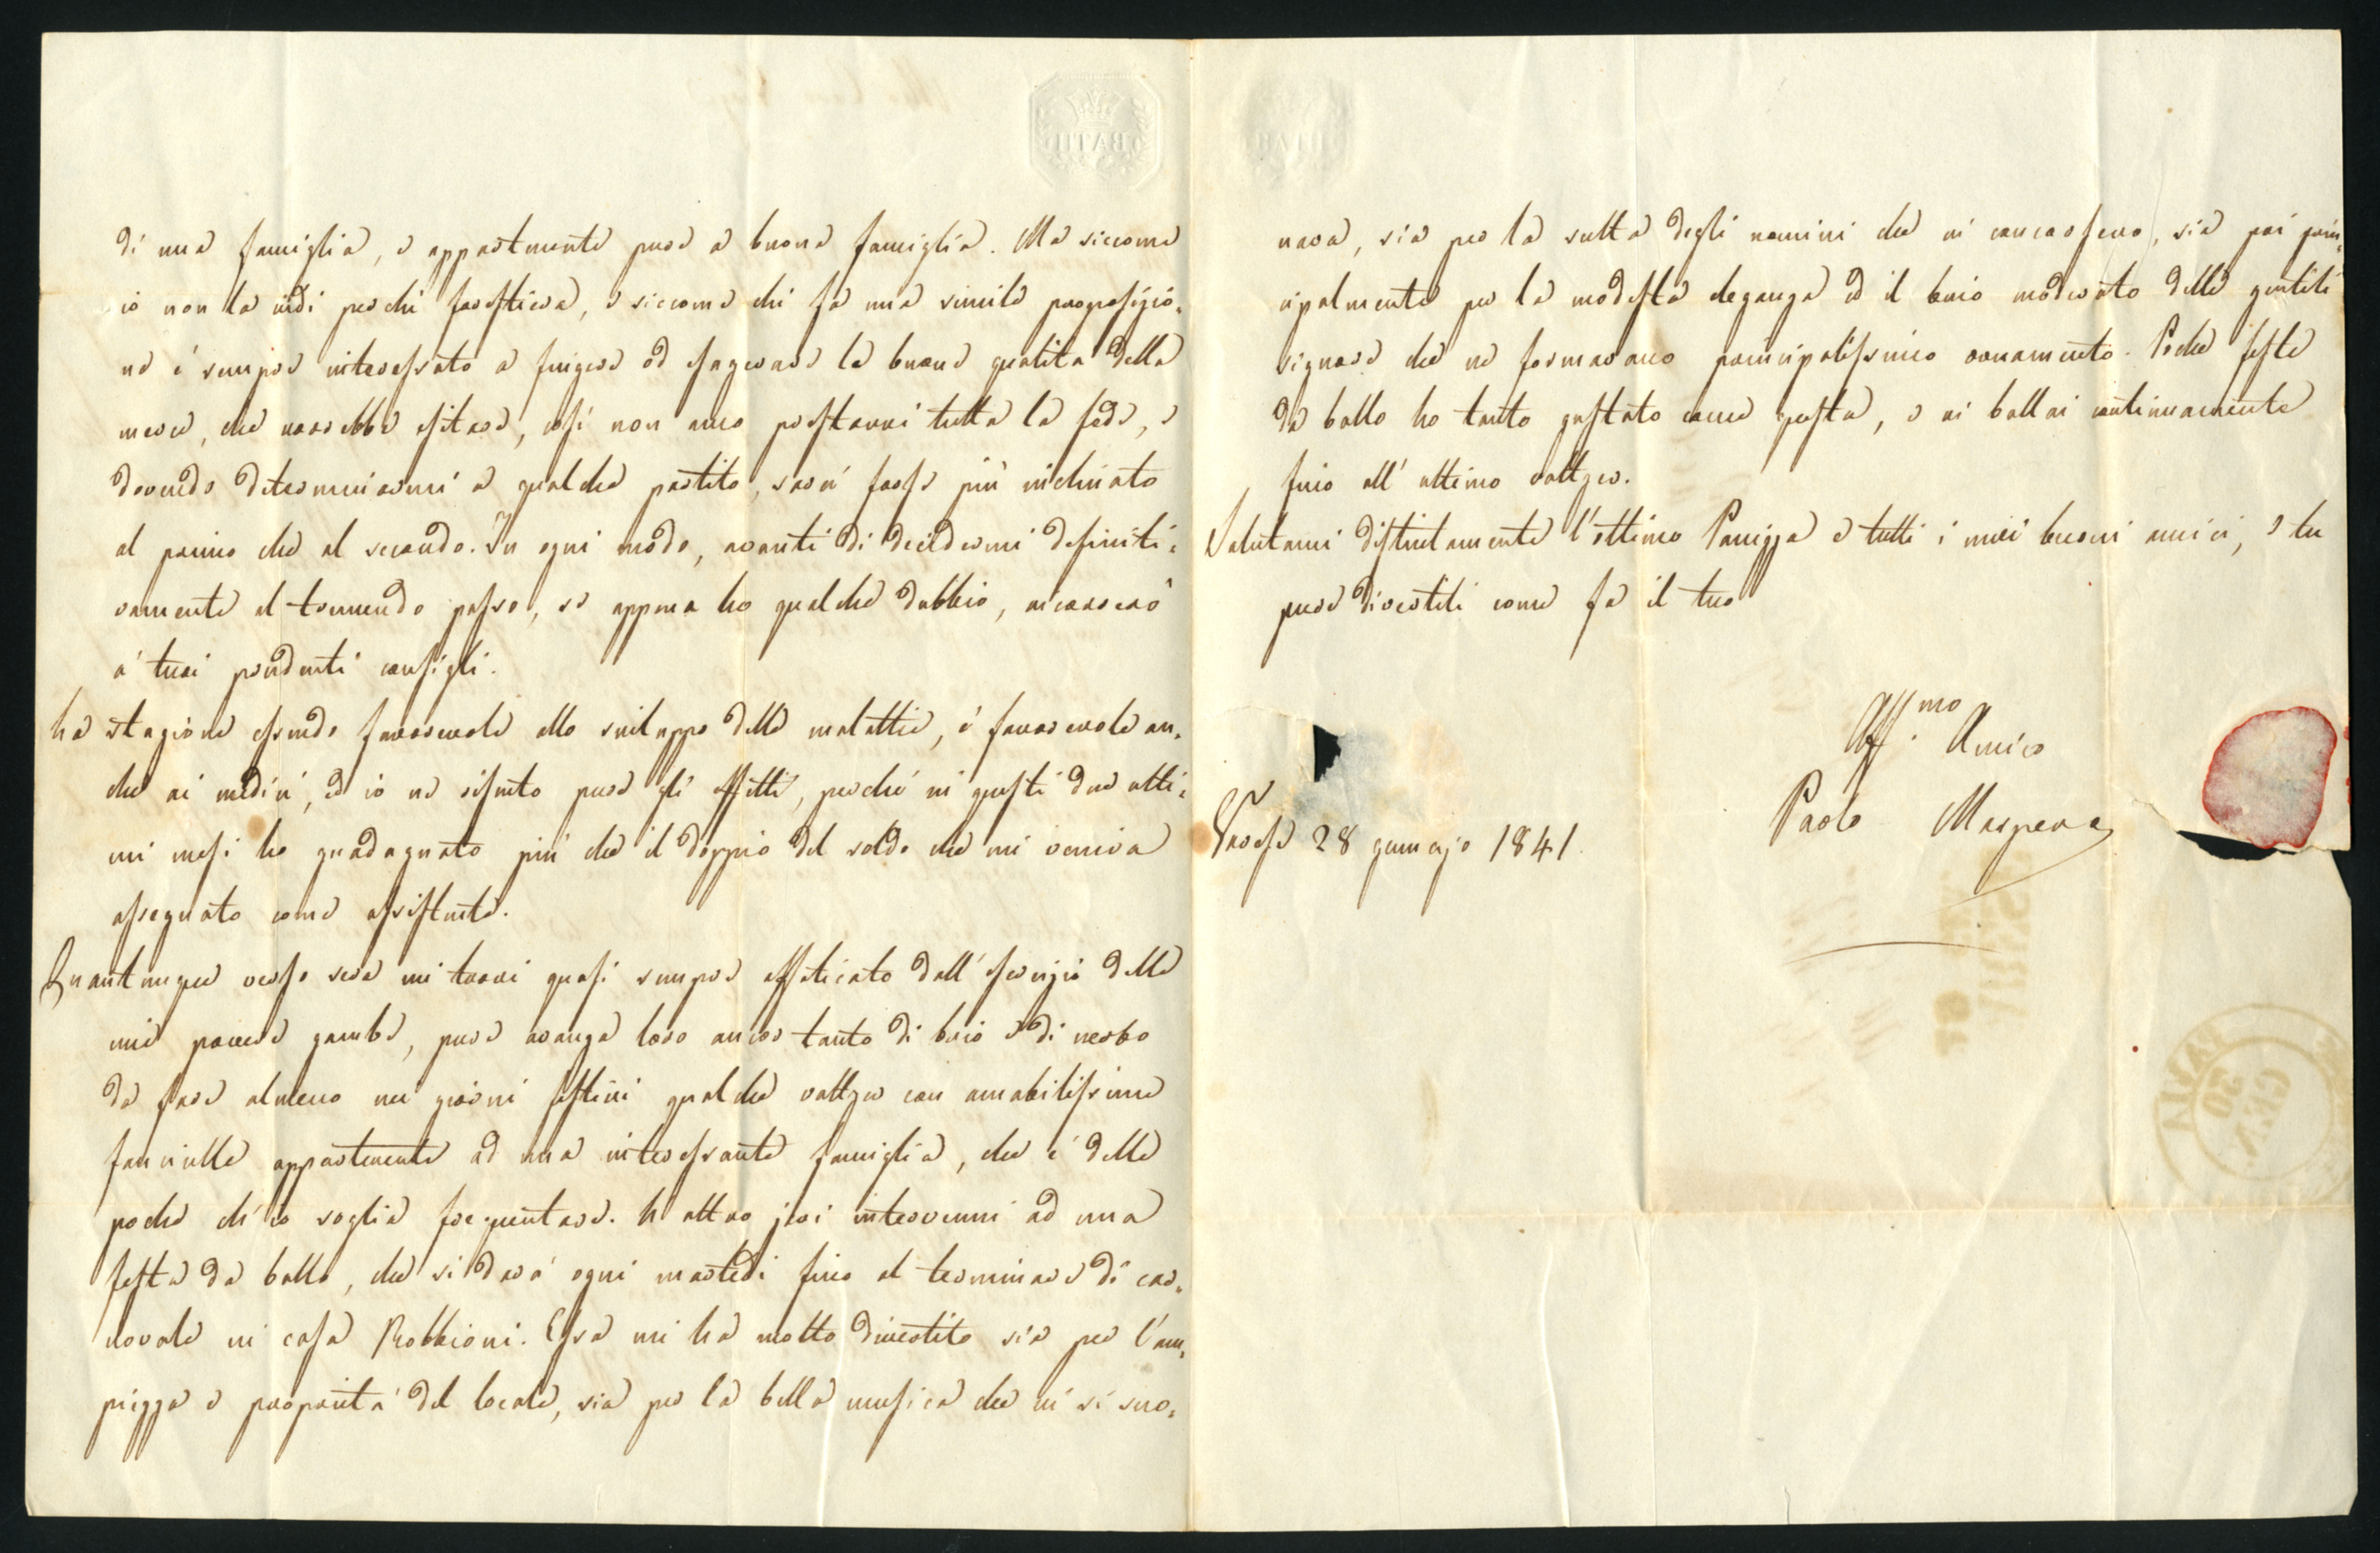 di una famiglia, e appartenente pure a buona famiglia. Ma siccome
io non la vidi perchè forestiera, e siccome chi fa una simile proposizio=
ne è sempre interessato a fingere od esagerare le buone qualità della
merce, che vorrebbe esitare, così non amo prestarvi tutta la fede, e
dovendo determinarmi a qualche partito, sarei forse più inchinato
al primo che al secondo. In ogni modo, avanti di decidermi definiti=
vamente al tremendo passo, se appena ho qualche dubbio, ricorrerò
a' tuoi prudenti consigli.
La stagione essendo favorevole allo sviluppo delle malattie, è favorevole an=
che ai medici, ed io ne risento pure gli effetti, perchè in questi due ulti=
mi mesi ho guadagnato più che il doppio del soldo che mi veniva
assegnato come assistente.
Quantunque verso sera mi trovi quasi sempre affaticato dall'esercizio delle
mie povere gambe, pure avanza loro ancor tanto di brio e di nerbo
da fare almeno nei giorni festivi qualche valtzer con amabilissime
fanciulle appartenenti ad una interessante famiglia, che è delle
poche ch'io soglia frequentare. L'altro jeri intervenni ad una
festa da ballo, che si darà ogni martedì fino al terminare di car=
novale in casa Robbioni. Essa mi ha molto divertito sia per l'am=
piezza e proprietà del locale, sia per la bella musica che vi si suo=
nava, sia per la scelta degli uomini che vi concorsero, sia poi prin=
cipalmente per la modesta eleganza ed il brio moderato delle gentili
signore che ne formavano principalissimo ornamento. Poche feste
da ballo ho tanto gustato come questa, e vi ballai continuamente
fino all'ultimo valtzer.
Salutami distintamente l'ottimo Panizza e tutti i miei buoni amici, e tu
pure divertiti come fa il tuo
Aff.mo Amico
Paolo Maspera
Varese 28 gennajo 1841.